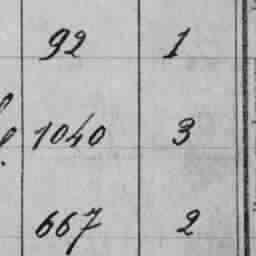 92 1
1040 3
667 2